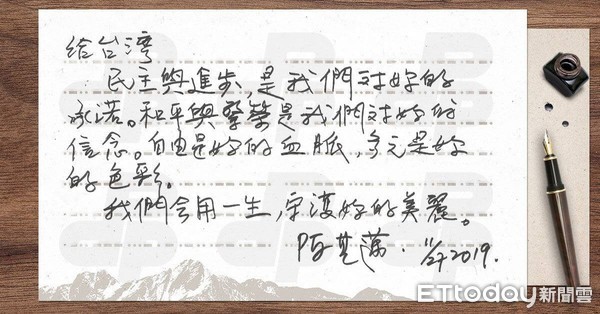 給台灣
民主與進步，是我們對妳的
承諾。和平與繁榮是我們對妳的
信念。自由是妳的血脈，多元是妳
的色彩。
我們會用一生，守護妳的美麗。
陳其邁. 11/27 2019.
ETtoday新聞雲